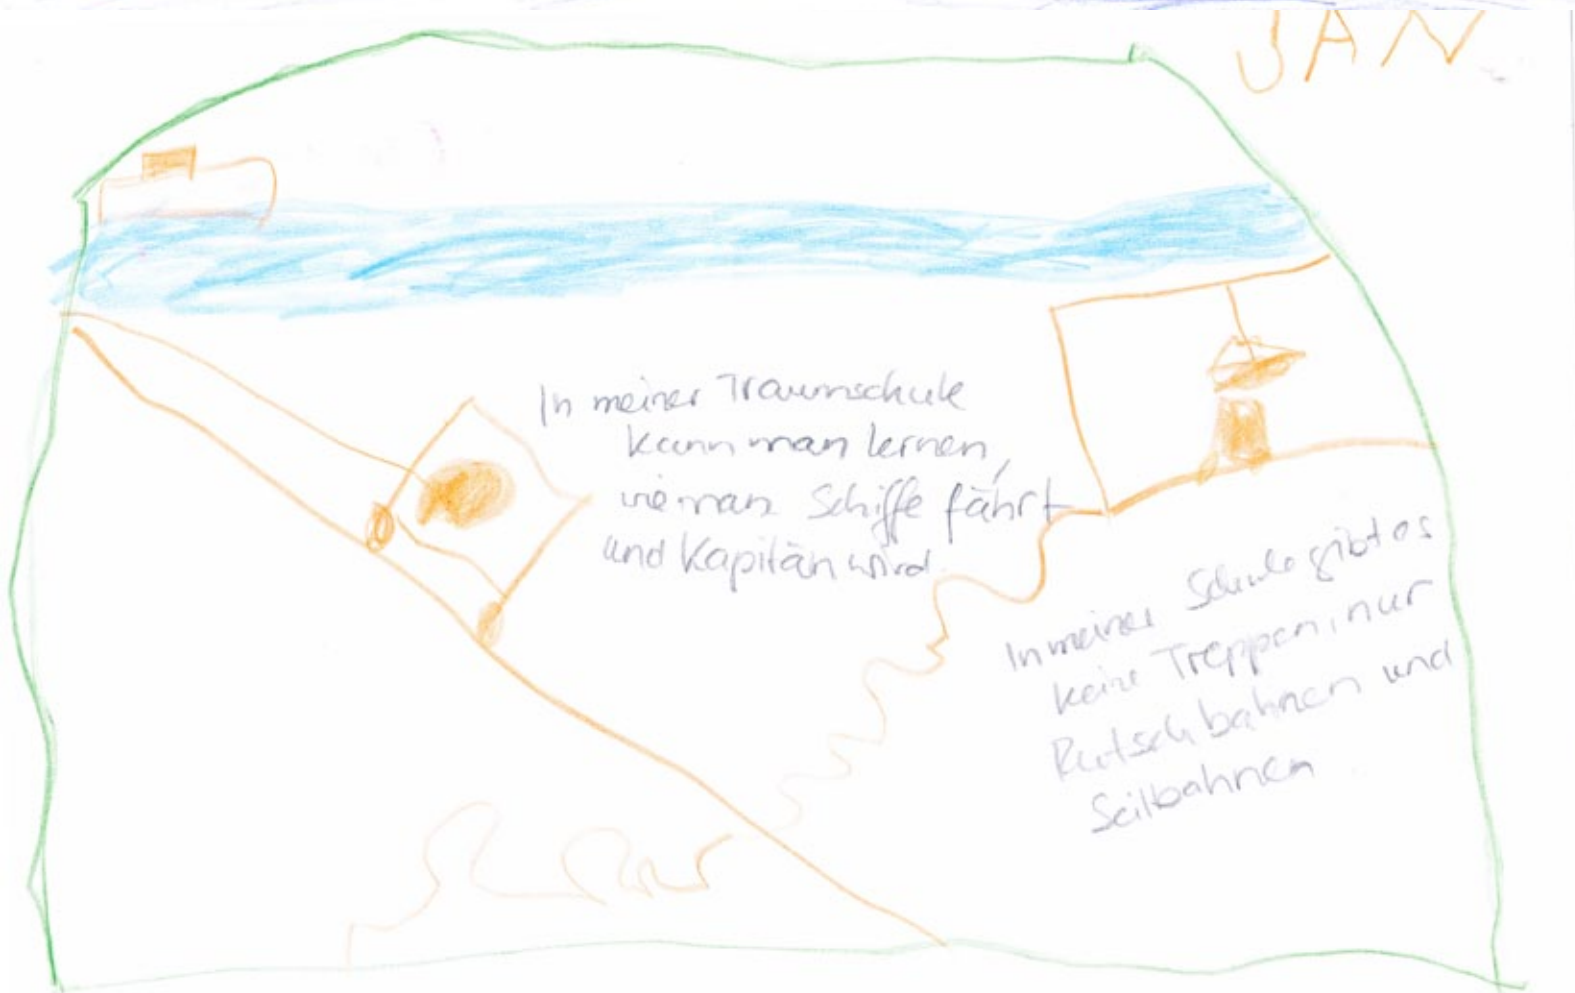 JAN
In meiner Traumschule
kann man lernen,
wie man Schiffe fährt
und Kapitän wird.
In meiner Schule gibt es
keine Treppen, nur
Rutschbahnen und
Seilbahnen